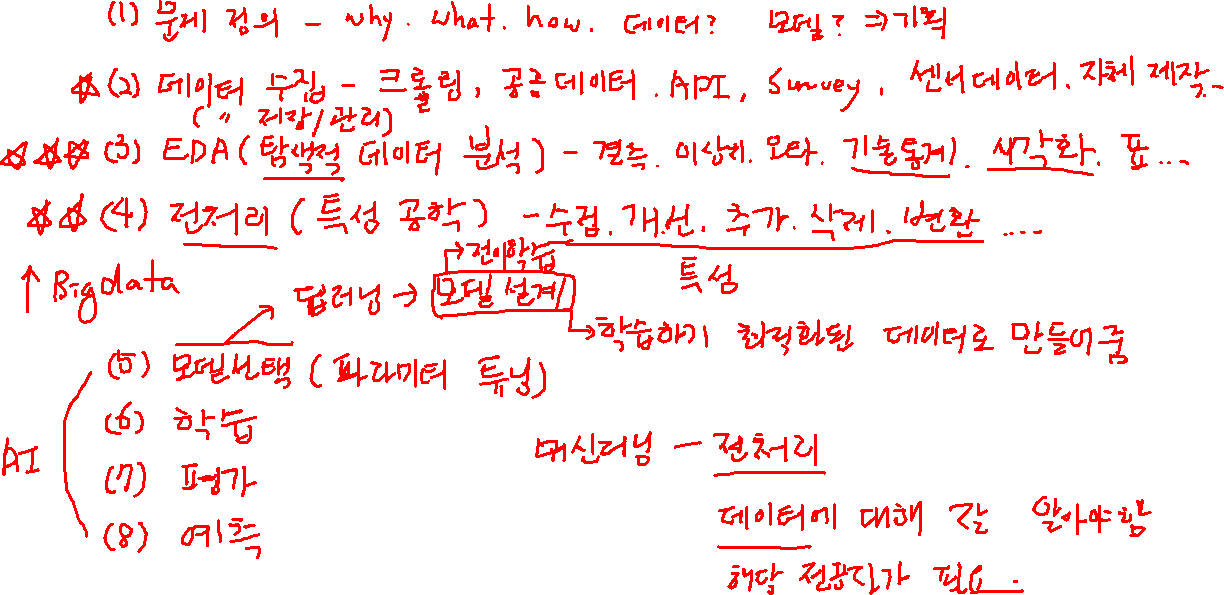 (1) 문제 정의 - why. what. how. 데이터? 모델? ⇒ 기획
☆(2) 데이터 수집 - 크롤링, 공공데이터. API, Survey, 센서데이터. 자체 제작..
( 〃 저장/관리)
☆☆☆ (3) EDA (탐색적 데이터 분석) - 결측. 이상치. 오타. 기술통계. 시각화. 표...
☆☆ (4) 전처리 (특성 공학) - 수정. 개선. 추가. 삭제. 변환 ....
→ 전이학습
특성
↑ Big data
딥러닝 → 모델 설계
→ 학습하기 최적화된 데이터로 만들어줌
(5) 모델선택 (파라미터 튜닝)
(6) 학습
AI
(7) 평가
(8) 예측
머신러닝 - 전처리
데이터에 대해 잘 알아야함
해당 전공자가 필요.